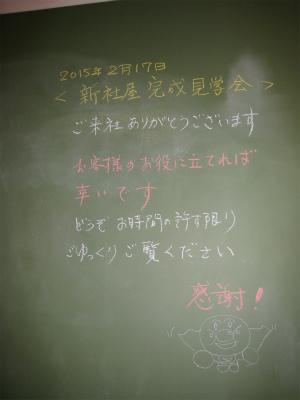 2015年2月17日
<新社屋完成見学会>
ご来社ありがとうございます
お客様のお役に立てれば
幸いです
どうぞ お時間の許す限り
ごゆっくりご覧ください
感謝!